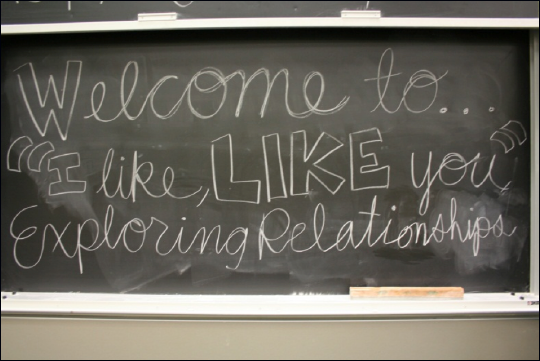 Welcome to...
"I like, LIKE you"
Exploring Relationships